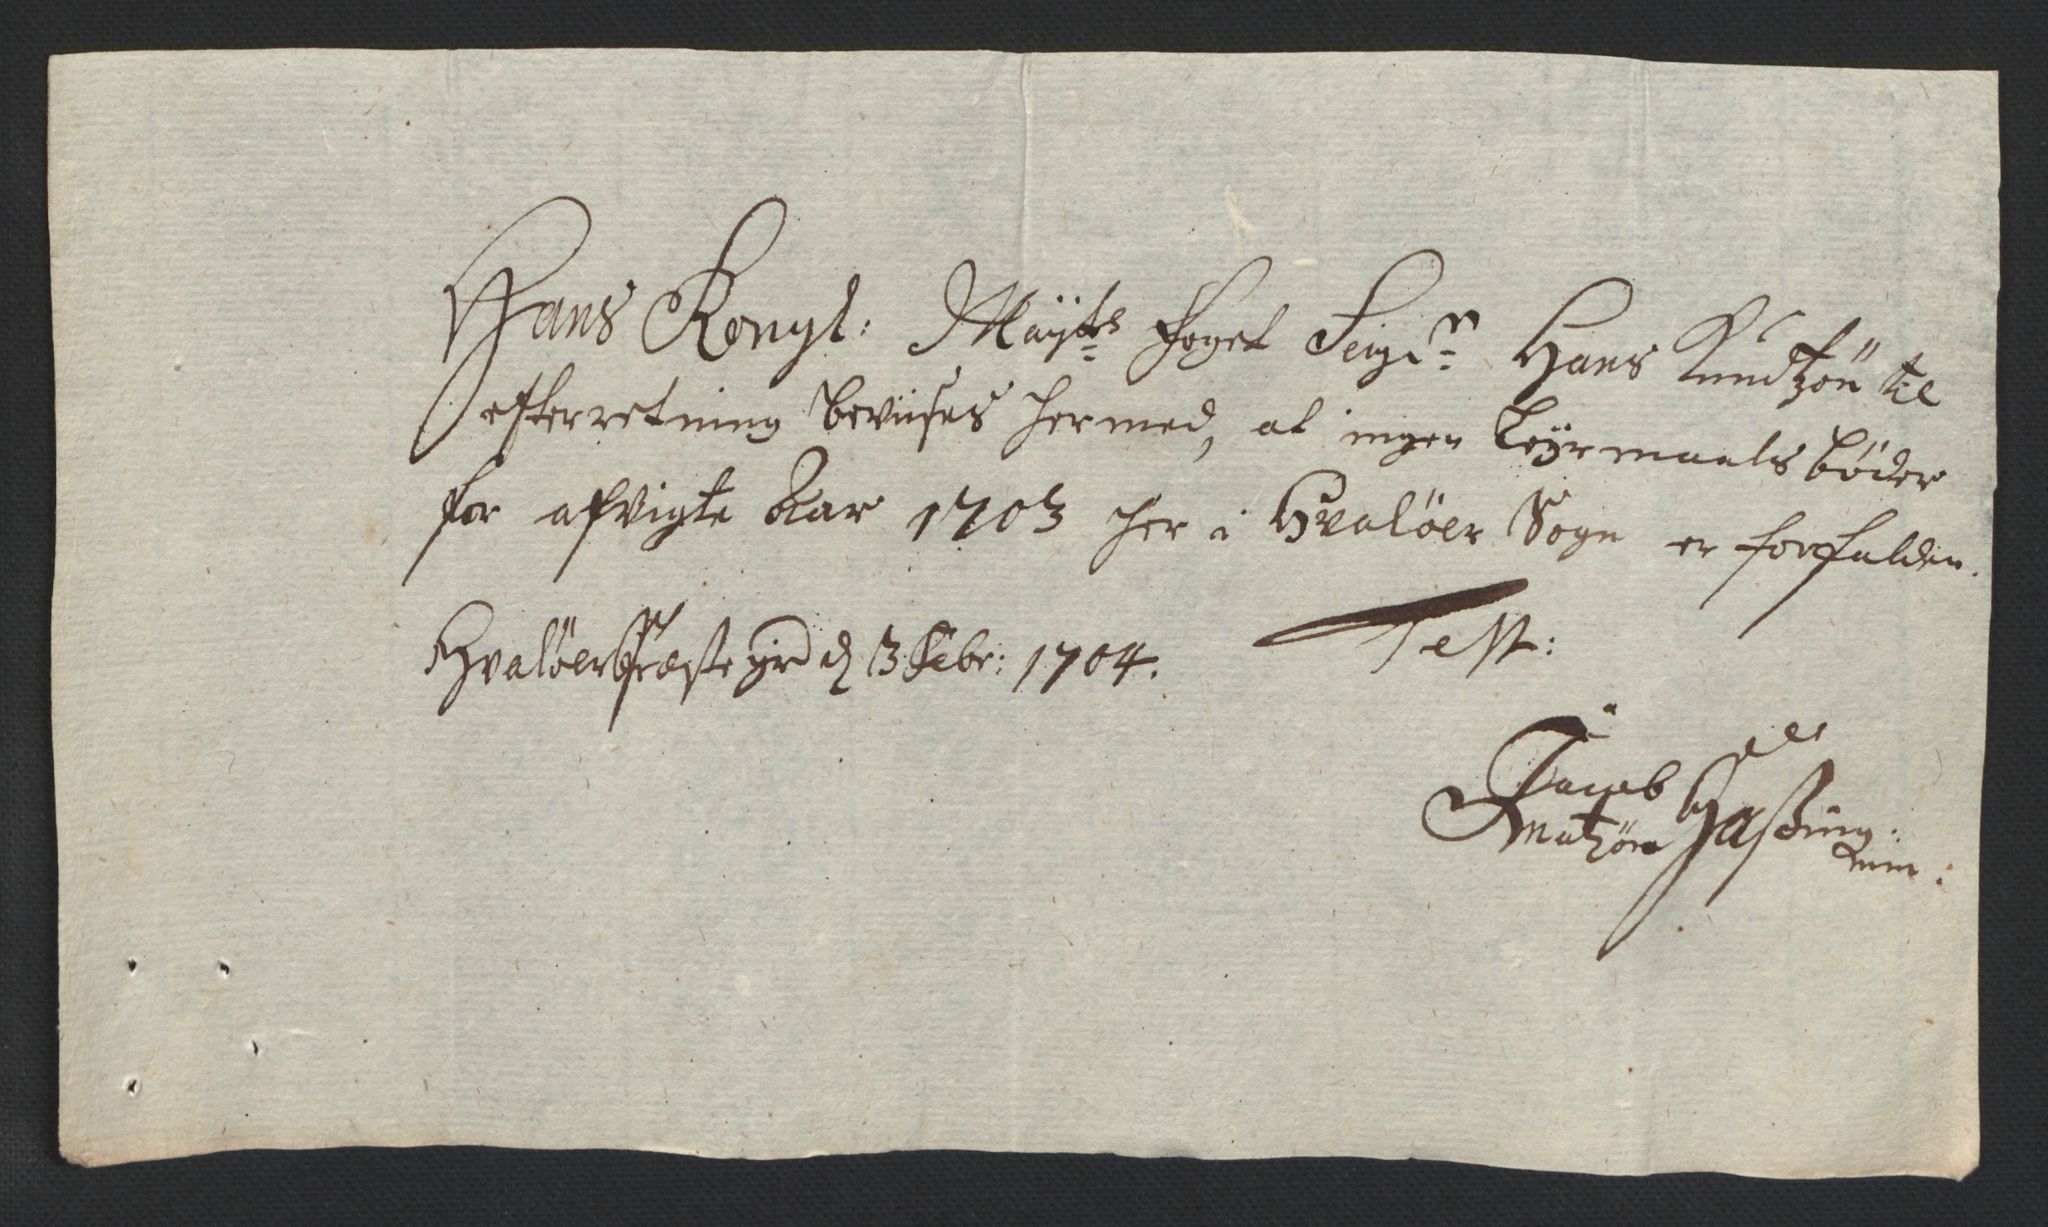 Hans Kongl: Mayts foget Seigr Hans Knudtzøn til
efterretning beviises hermed, at ingen Leyrmaals bøder
for afvigte Aar 1703 her i Hvaløer Sogn er forfalden.
Hvaløer Præstegrd d 3 Febr: 1704. Test:
Jacob
Knutzøn Hassing